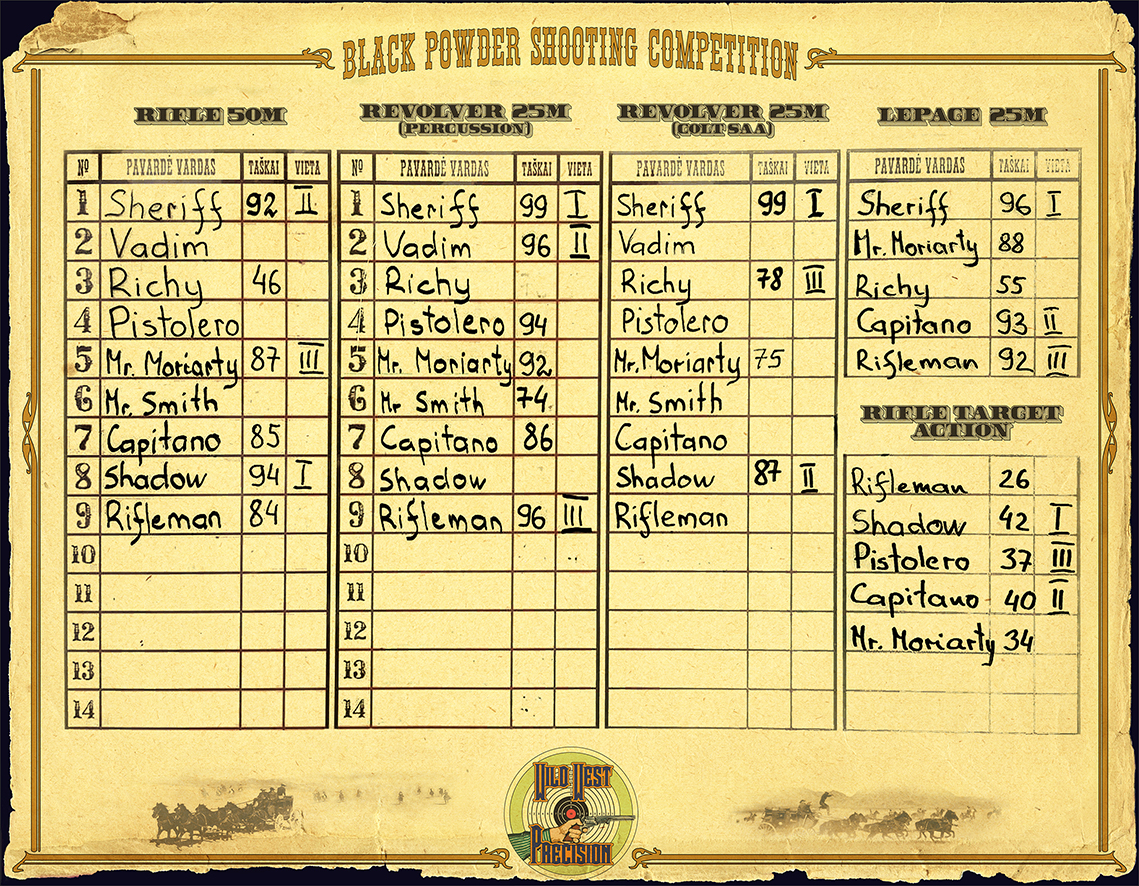 BLACK POWDER SHOOTING COMPETITION
RIFLE 50M
Nº PAVARDĖ VARDAS TAŠKAI VIETA
1 Sheriff 92 II
2 Vadim
3 Richy 46
4 Pistolero
5 Mr. Moriarty 87 III
6 Mr. Smith
7 Capitano 85
8 Shadow 94 I
9 Rifleman 84
10
11
12
13
14
REVOLVER 25M
(PERCUSSION)
Nº PAVARDĖ VARDAS TAŠKAI VIETA
1 Sheriff 99 I
2 Vadim 96 II
3 Richy
4 Pistolero 94
5 Mr. Moriarty 92
6 Mr Smith 74
7 Capitano 86
8 Shadow
9 Rifleman 96 III
10
11
12
13
14
REVOLVER 25M
(COLT SAA)
PAVARDĖ VARDAS TAŠKAI VIETA
Sheriff 99 I
Vadim
Richy 78 III
Pistolero
Mr. Moriarty 75
Mr. Smith
Capitano
Shadow 87 II
Rifleman
LEPAGE 25M
PAVARDĖ VARDAS TAŠKAI VIETA
Sheriff 96 I
Mr. Moriarty 88
Richy 55
Capitano 93 II
Rifleman 92 III
RIFLE TARGET
ACTION
Rifleman 26
Shadow 42 I
Pistolero 37 III
Capitano 40 II
Mr. Moriarty 34
WILD WEST
PRECISION